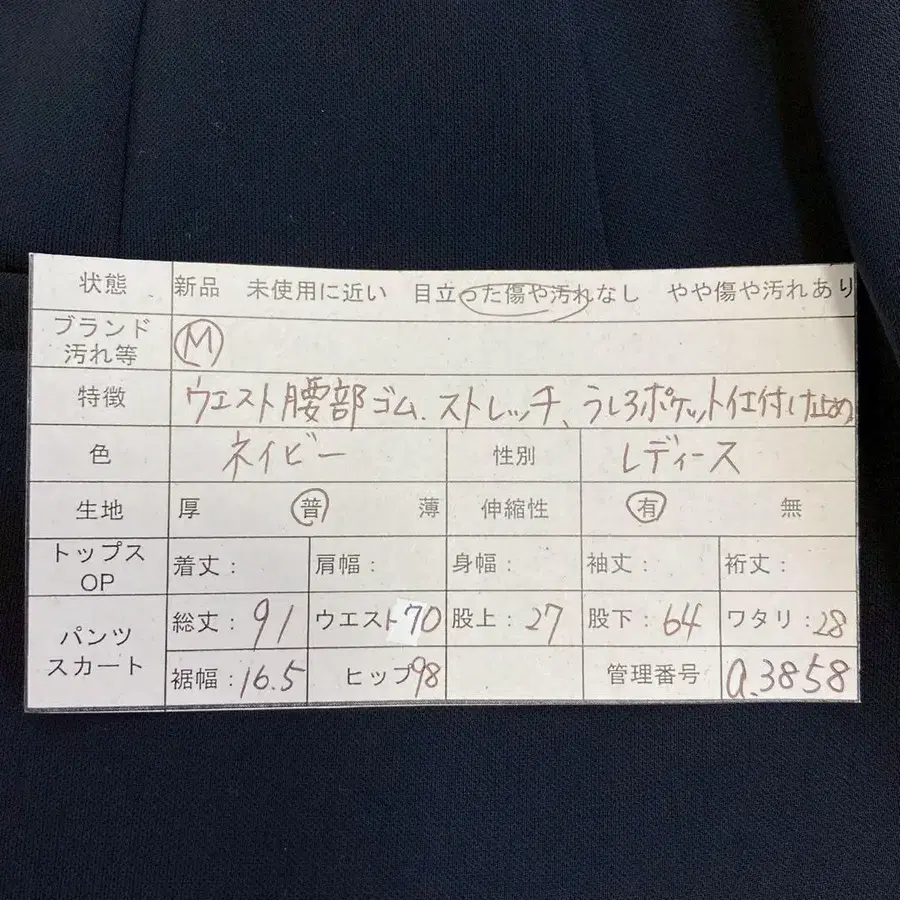 状態 新品 未使用に近い 目立った傷や汚れなし やや傷や汚れあり
ブランド
汚れ等 M
特徴 ウエスト腰部ゴム、ストレッチ、うしろポケット仕付け止め
色 ネイビー 性別 レディース
生地 厚 普 薄 伸縮性 有 無
トップス
OP 着丈: 肩幅: 身幅: 袖丈: 裄丈:
パンツ
スカート
総丈:91 ウエスト70 股上:27 股下:64 ワタリ:28
裾幅:16.5 ヒップ98 管理番号 a.3858